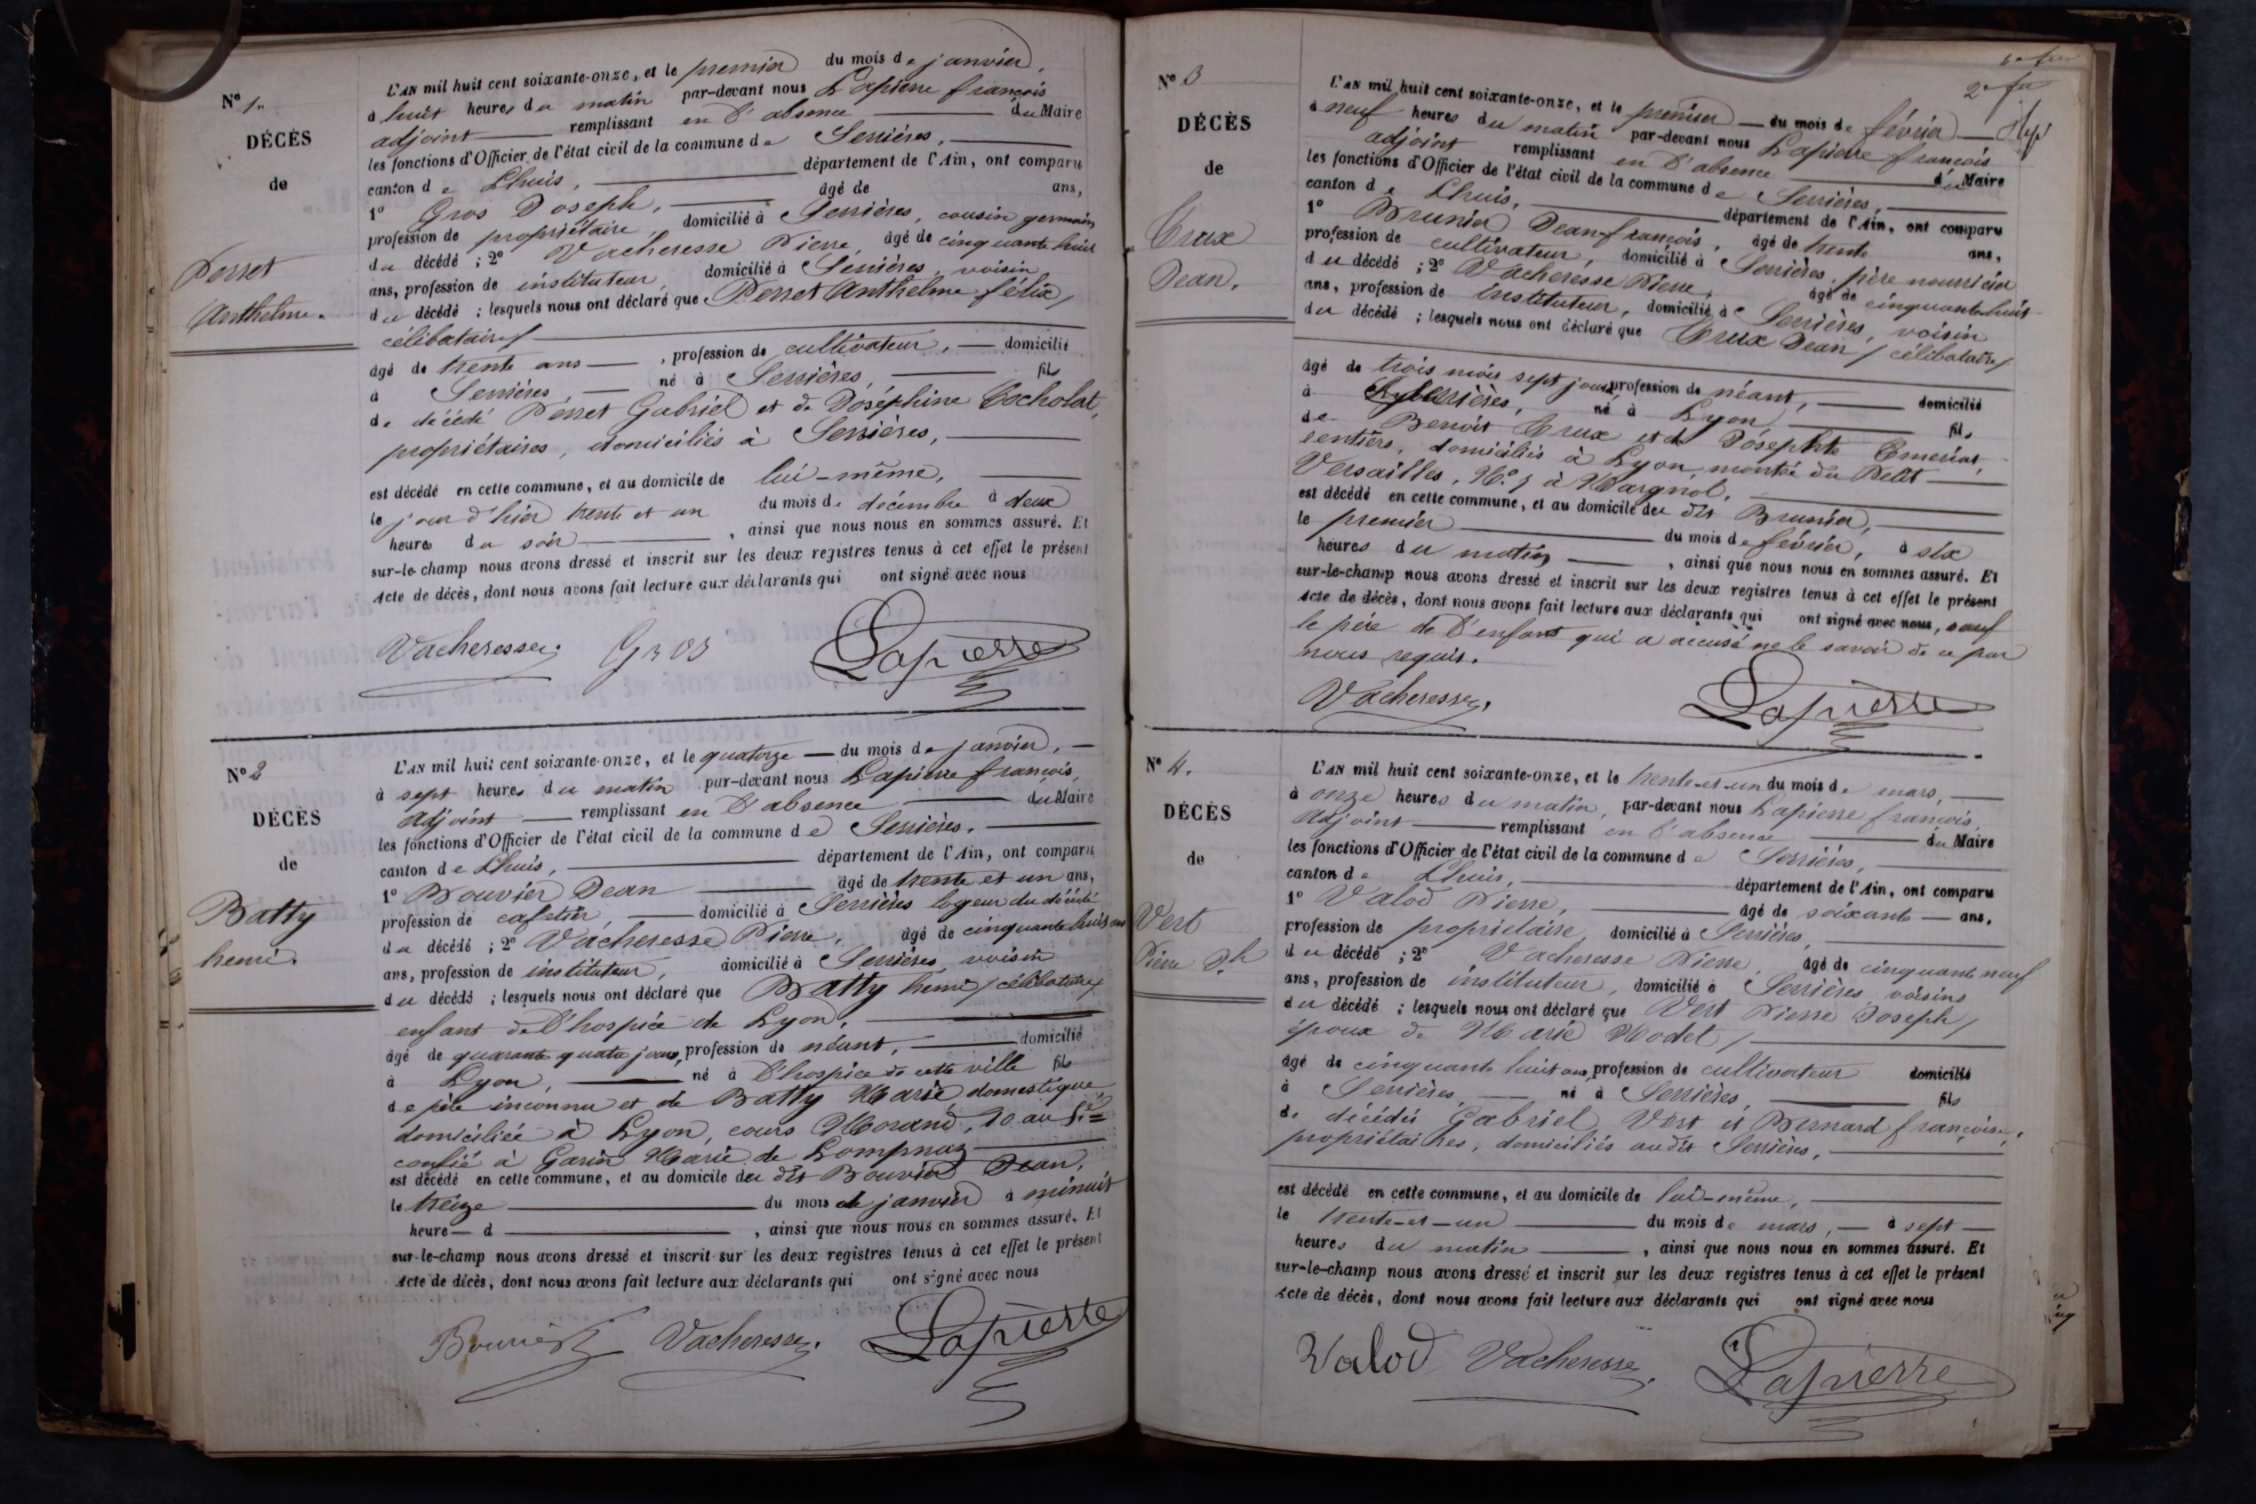 N° 1.
DÉCÈS
de
Perret
Anthelme.
L'AN mil huit cent soixante-onze, et le premier du mois de janvier,
à huit heures du matin par-devant nous Lapierre françois
adjoint remplissant en l'absence du Maire
les fonctions d'Officier de l'état civil de la commune de Serrières,
canton de Lhuis, département de l'Ain, ont comparu
1° Gros Joseph, âgé de ans,
profession de propriétaire, domicilié à Serrières, cousin germain
du décédé ; 2° Vacheresse Pierre, âgé de cinquante huit
ans, profession de instituteur, domicilié à Serrières, voisin
du décédé ; lesquels nous ont déclaré que Perret Anthelme félix /
célibataire /
âgé de trente ans, profession de cultivateur, domicilié
à Serrières, né à Serrières, fils
de décédé Perret Gabriel et de Joséphine Cocholat,
propriétaires, domiciliés à Serrières,
est décédé en cette commune, et au domicile de lui-même,
le jour d'hier trente et un du mois de décembre à deux
heures du soir, ainsi que nous nous en sommes assuré. Et
sur-le-champ nous avons dressé et inscrit sur les deux registres tenus à cet effet le présent
Acte de décès, dont nous avons fait lecture aux déclarants qui ont signé avec nous
Vacheresse. Gros Lapierre
N° 2
DÉCÈS
de
Batty
henri.
L'AN mil huit cent soixante-onze, et le quatorze du mois de janvier,
à sept heures du matin par-devant nous Lapierre françois,
Adjoint remplissant en l'absence du Maire
les fonctions d'Officier de l'état civil de la commune de Serrières,
canton de Lhuis, département de l'Ain, ont comparu
1° Bouvier Jean âgé de trente et un ans,
profession de cafetier, domicilié à Serrières logeur du décédé
du décédé ; 2° Vacheresse Pierre, âgé de cinquante huit ans
ans, profession de instituteur, domicilié à Serrières voisin
du décédé ; lesquels nous ont déclaré que Batty henri / célibataire /
enfant de l'hospice de Lyon,
âgé de quarante quatre jours, profession de néant, domicilié
à Lyon, né à l'hospice de cette ville fils
de père inconnu et de Batty Marie, domestique
domiciliée à Lyon, cours Morand, 10 au
confié à Garin Marie de Lompnaz
est décédé en cette commune, et au domicile du dit Bouvier Jean,
le treize du mois de janvier à minuit
heure d , ainsi que nous nous en sommes assuré. Et
sur-le-champ nous avons dressé et inscrit sur les deux registres tenus à cet effet le présent
Acte de décès, dont nous avons fait lecture aux déclarants qui ont signé avec nous
Bouvier Vacheresse. Lapierre
2e fet
N° 3
DÉCÈS
de
Crux
Jean.
L'AN mil huit cent soixante-onze, et le premier du mois de février
à neuf heures du matin par-devant nous Lapierre françois
adjoint remplissant en l'absence du Maire
les fonctions d'Officier de l'état civil de la commune de Serrières,
canton de Lhuis, département de l'Ain, ont comparu
1° Brunier Jean-françois, âgé de trente ans,
profession de cultivateur, domicilié à Serrières, père nourricier
du décédé ; 2° Vacheresse Pierre, âgé de cinquante huit
ans, profession de instituteur, domicilié à Serrières, voisin
du décédé ; lesquels nous ont déclaré que Crux Jean / célibataire /
âgé de trois mois sept jours, profession de néant, domicilié
à Serrières, né à Lyon, fils
de Benoit Crux et de Josephte
rentiers, domiciliés à Lyon, montée du Petit
Versailles, N°. 7 à Margniol.
est décédé en cette commune, et au domicile du dit Brunier,
le premier du mois de février, à six
heures du matin, ainsi que nous nous en sommes assuré. Et
sur-le-champ nous avons dressé et inscrit sur les deux registres tenus à cet effet le présent
Acte de décès, dont nous avons fait lecture aux déclarants qui ont signé avec nous, sauf
le père de l'enfant qui a accusé ne le savoir de ce par
nous requis.
Vacheresse. Lapierre
N° 4.
DÉCÈS
de
Vert
Pierre Jh
L'AN mil huit cent soixante-onze, et le trente-et-un du mois de mars,
à onze heures du matin, par-devant nous Lapierre françois,
Adjoint remplissant en l'absence du Maire
les fonctions d'Officier de l'état civil de la commune de Serrières,
canton de Lhuis, département de l'Ain, ont comparu
1° Valod Pierre, âgé de soixante ans,
profession de propriétaire, domicilié à Serrières,
du décédé ; 2° Vacheresse Pierre, âgé de cinquante neuf
ans, profession de instituteur, domicilié à Serrières, voisins
du décédé ; lesquels nous ont déclaré que Vert Pierre Joseph /
époux de Marie Modet /
âgé de cinquante huit ans, profession de cultivateur domicilié
à Serrières, né à Serrières, fils
de décédés Gabriel Vert et Bernard françoise,
propriétaires, domiciliés audit Serrières,
est décédé en cette commune, et au domicile de lui-même,
le trente-et-un du mois de mars, à sept
heures du matin, ainsi que nous nous en sommes assuré. Et
sur-le-champ nous avons dressé et inscrit sur les deux registres tenus à cet effet le présent
Acte de décès, dont nous avons fait lecture aux déclarants qui ont signé avec nous
Valod Vacheresse. Lapierre